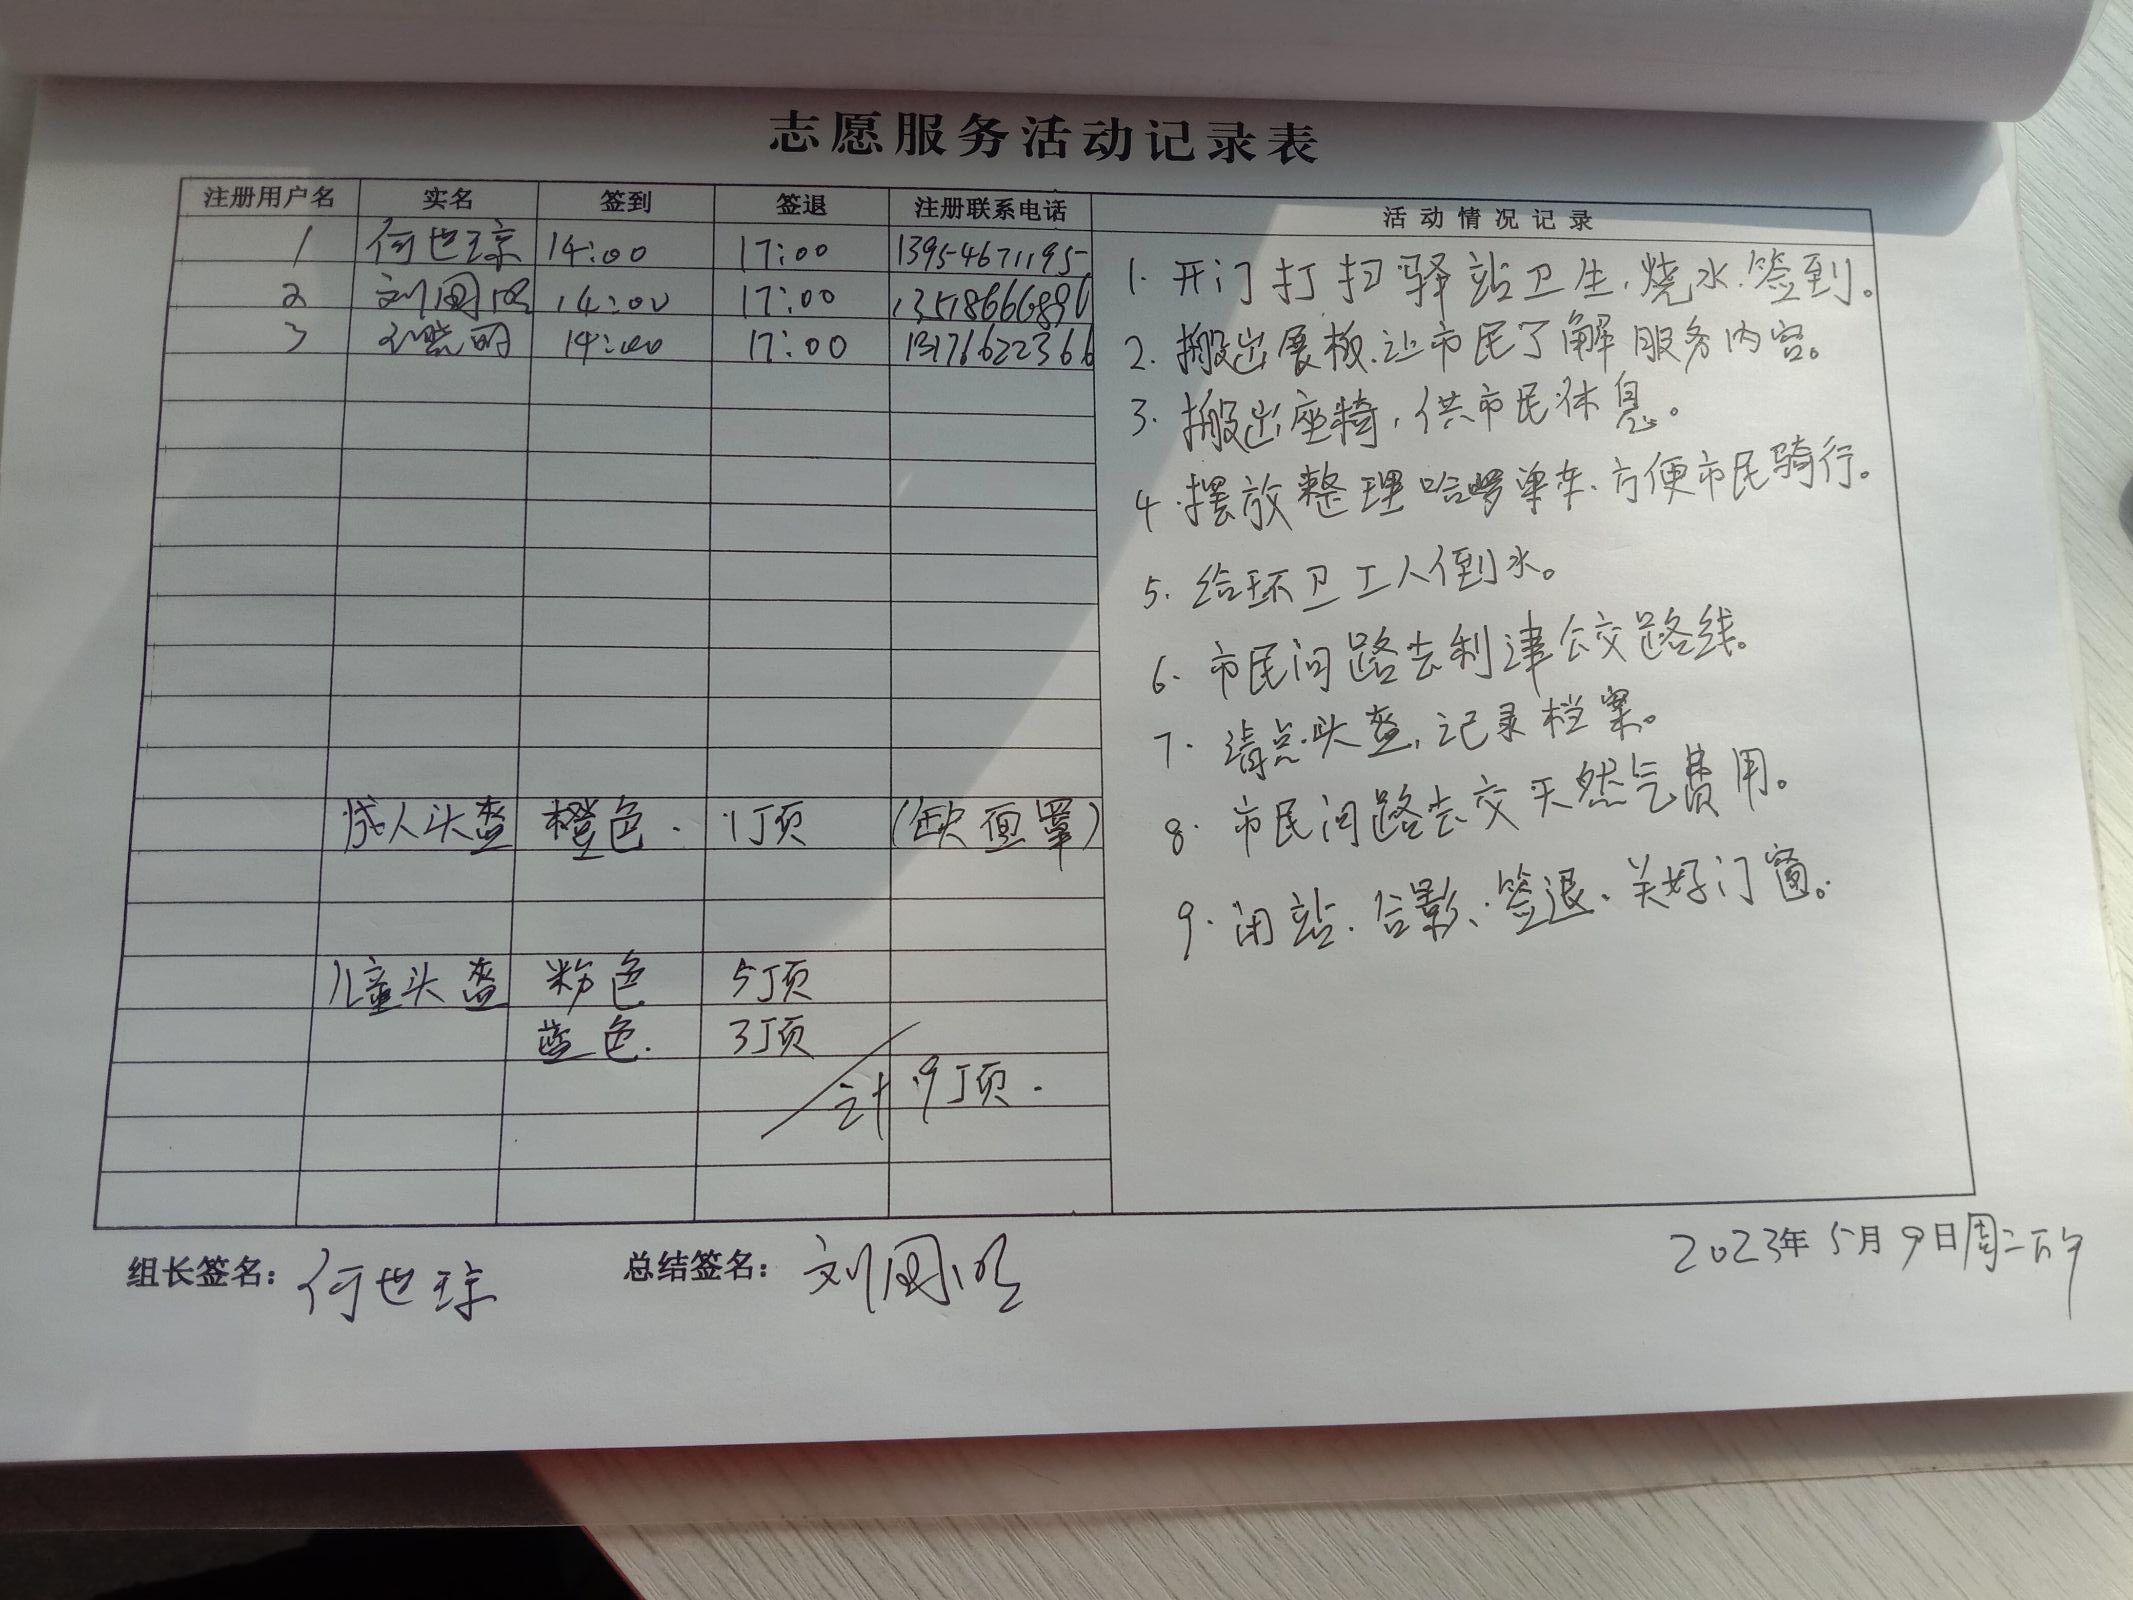 志愿服务活动记录表
注册用户名 实名 签到 签退 注册联系电话 活动情况记录
1 何世琼 14:00 17:00 13954671195
2 刘国 14:00 17:00
3 晓明 14:00 17:00 13176622366
1. 开门打扫驿站卫生、烧水、签到。
2. 搬出展板、让市民了解服务内容。
3. 搬出座椅,供市民休息。
4. 摆放整理哈啰单车、方便市民骑行。
5. 给环卫工人倒水。
6. 市民问路去利津公交路线。
7. 清点头盔,记录档案。
8. 市民问路去交天然气费用。
9. 闭站、合影、签退、关好门窗。
成人头盔 橙色. 1顶 (缺面罩)
儿童头盔 粉色 5顶
蓝色. 3顶
计 9顶.
组长签名: 何世琼 总结签名: 刘国 2023年5月9日周二下午